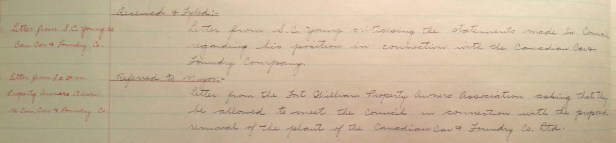 Received & Filed:-
Letter from S.C. Young re
Can Car & Foundry Co.
Letter from S.C. Young criticising the statements made in Counc
regarding his position in connection with the Canadian Car &
Foundry Company.
Letter from
Property Owners Assn
re Can. Car & Foundry Co.
Referred to Mayor:-
Letter from the Fort William Property Owners Association asking that they
be allowed to meet the Council in connection with the proposed
removal of the plant of the Canadian Car & Foundry Co. Ltd.